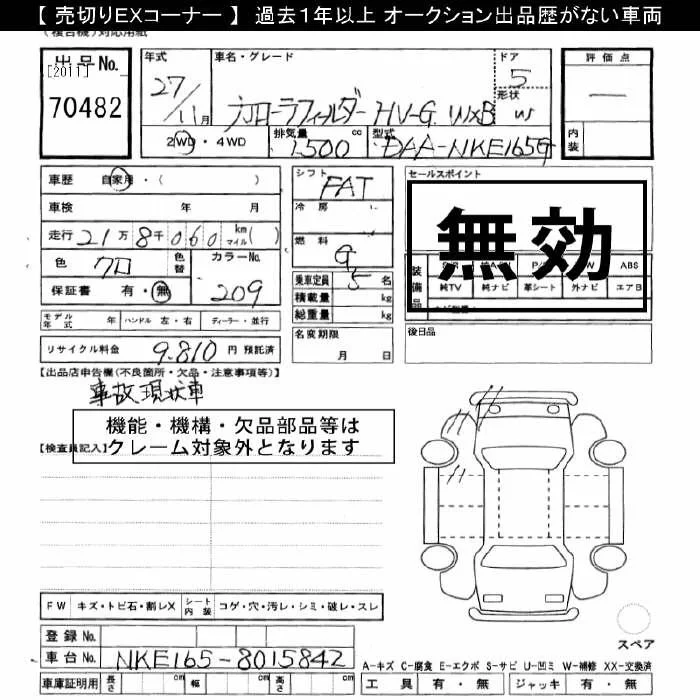 【 売切りEXコーナー 】 過去1年以上 オークション出品歴がない車両
(複合機)対応用紙
出品No.
[2011]
70482
年式
27/11月
車名・グレード
カローラフィールダー HV-G WxB
ドア
5
形状
W
評価点
—
内装
2WD・4WD
排気量
1500 cc
型式
DAA-NKE165G
車歴 自家用・( )
車検 年 月
走行 21万8千060 km マイル( )
色 クロ
色替
カラーNo. 209
保証書 有・無
モデル年式
ハンドル 左・右
ディーラー・並行
リサイクル料金 9,810 円 預託済
シフト FAT
冷房
燃料 G
乗車定員 5 名
積載量 kg
総重量 kg
名変期限
月 日
セールスポイント
無効
装備品
ABS
純TV 純ナビ 革シート 外ナビ エアB
後日品
【出品店申告欄(不良箇所・欠品・注意事項等)】
事故現状車
機能・機構・欠品部品等は
クレーム対象外となります
【検査員記入】
FW キズ・トビ石・割レX
シート内装 コゲ・穴・汚レ・シミ・破レ・スレ
登録No.
車台No. NKE165-8015842
車庫証明用 長さ cm 幅 cm 高さ cm
スペア
A-キズ C-腐食 E-エクボ S-サビ U-凹ミ W-補修 XX-交換済
工具 有・無 ジャッキ 有・無